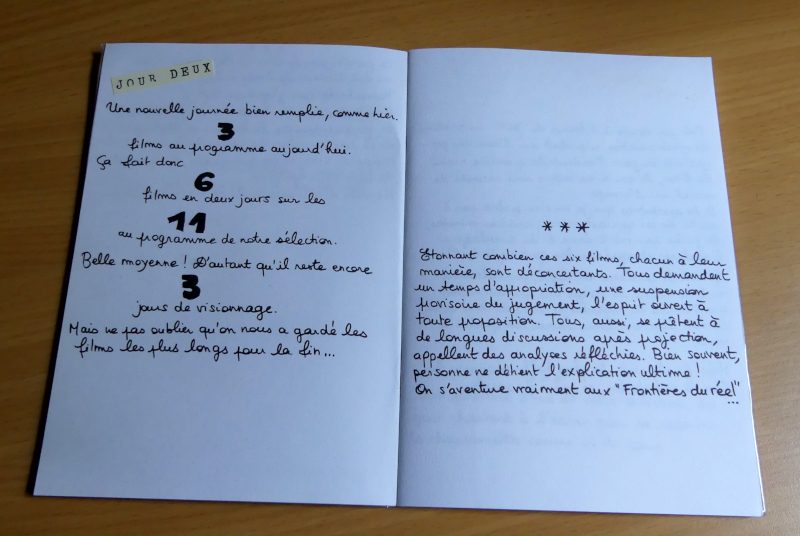 JOUR DEUX
Une nouvelle journée bien remplie, comme hier.
3
films au programme aujourd'hui.
Ça fait donc
6
films en deux jours sur les
11
au programme de notre sélection.
Belle moyenne ! D'autant qu'il reste encore
3
jours de visionnage.
Mais ne pas oublier qu'on nous a gardé les
films les plus longs pour la fin...
***
Etonnant combien ces six films, chacun à leur
manière, sont déconcertants. Tous demandent
un temps d'appropriation, une suspension
provisoire du jugement, l'esprit ouvert à
toute proposition. Tous, aussi, se prêtent à
de longues discussions après projection,
appellent des analyses réfléchies. Bien souvent,
personne ne détient l'explication ultime !
On s'aventure vraiment aux "Frontières du réel"
...